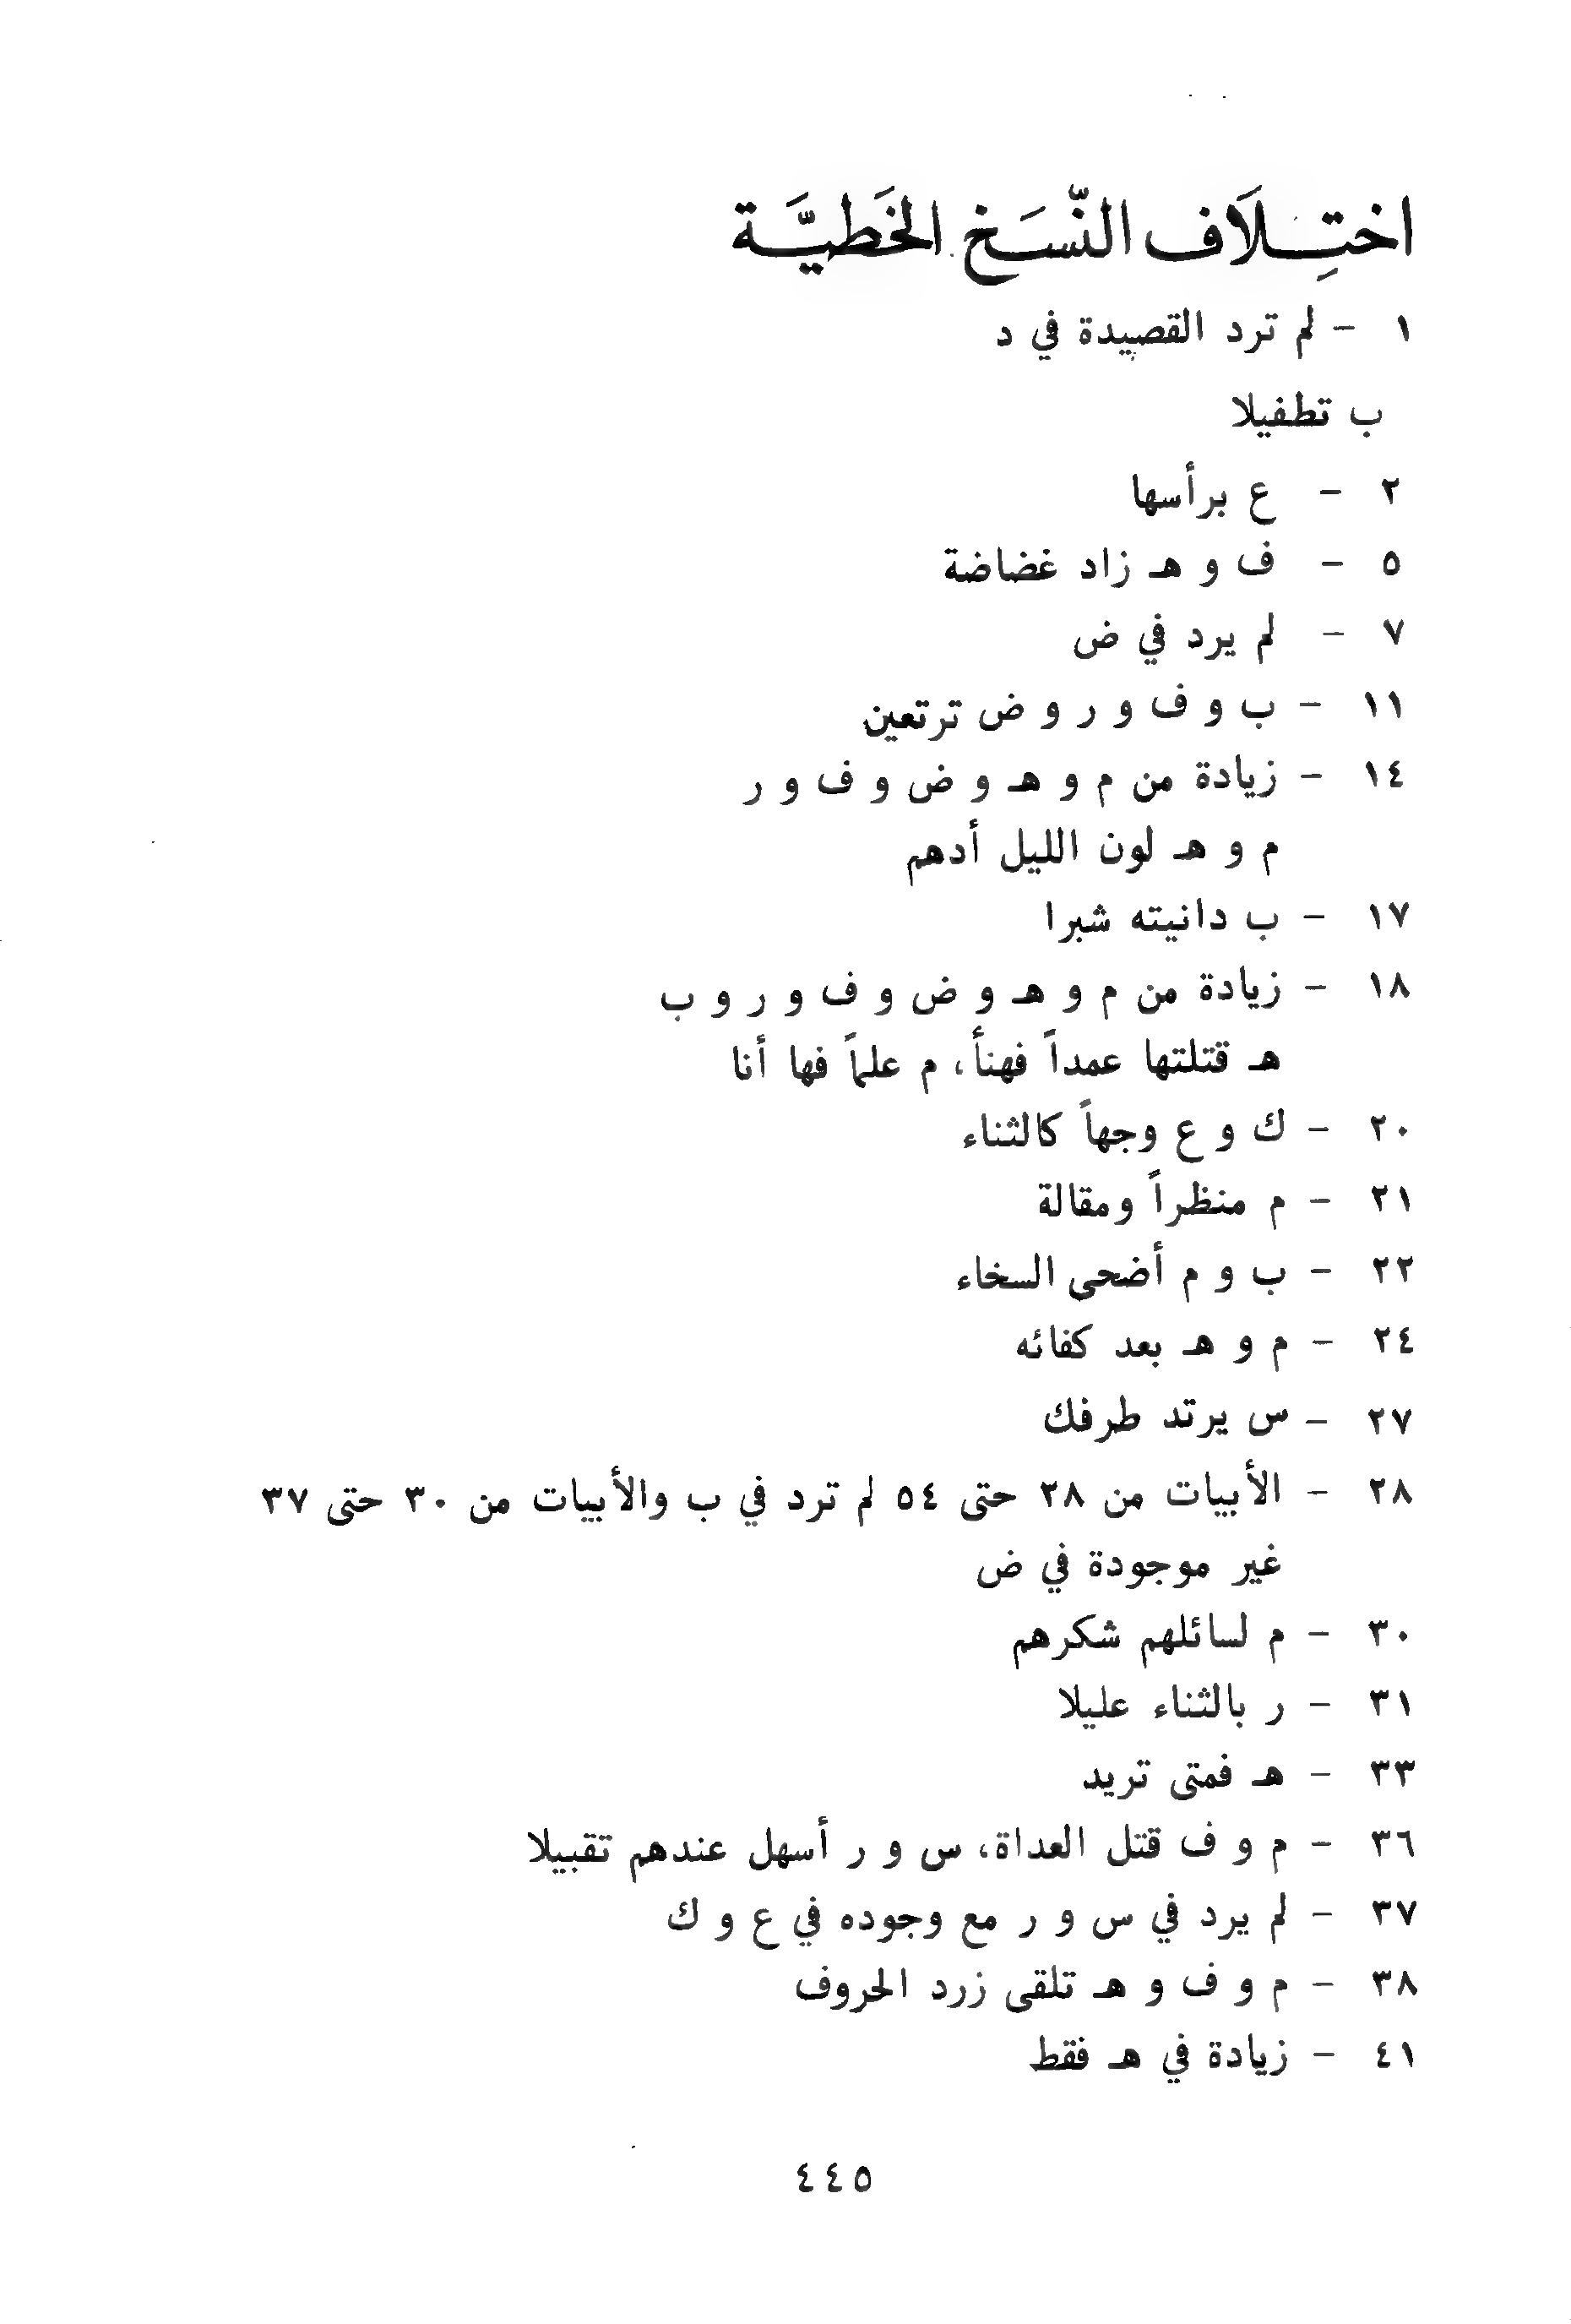 اختِلَاف النّسَخ الخَطيَّة
١ - لم ترد القصيدة في د
ب تطفيلا
٢ - ع برأسها
٥ - ف و هـ زاد غضاضة
٧ - لم يرد في ض
١١ - ب و ف و ر و ض ترتعين
١٤ - زيادة من م و هـ و ض و ف و ر
م و هـ لون الليل أدهم
١٧ - ب دانيته شبرا
١٨ - زيادة من م و هـ و ض و ف و ر و ب
هـ قتلتها عمداً فهنأ، م علماً فها أنا
٢٠ - ك و ع وجهاً كالثناء
٢١ - م منظراً ومقالة
٢٢ - ب و م أضحى السخاء
٢٤ - م و هـ بعد كفائه
٢٧ - س يرتد طرفك
٢٨ - الأبيات من ٢٨ حتى ٥٤ لم ترد في ب والأبيات من ٣٠ حتى ٣٧
غير موجودة في ض
٣٠ - م لسائلهم شكرهم
٣١ - ر بالثناء عليلا
٣٣ - هـ فمتى تريد
٣٦ - م و ف قتل العداة، س و ر أسهل عندهم تقبيلا
٣٧ - لم يرد في س و ر مع وجوده في ع و ك
٣٨ - م و ف و هـ تلقى زرد الحروف
٤١ - زيادة في هـ فقط
٤٤٥